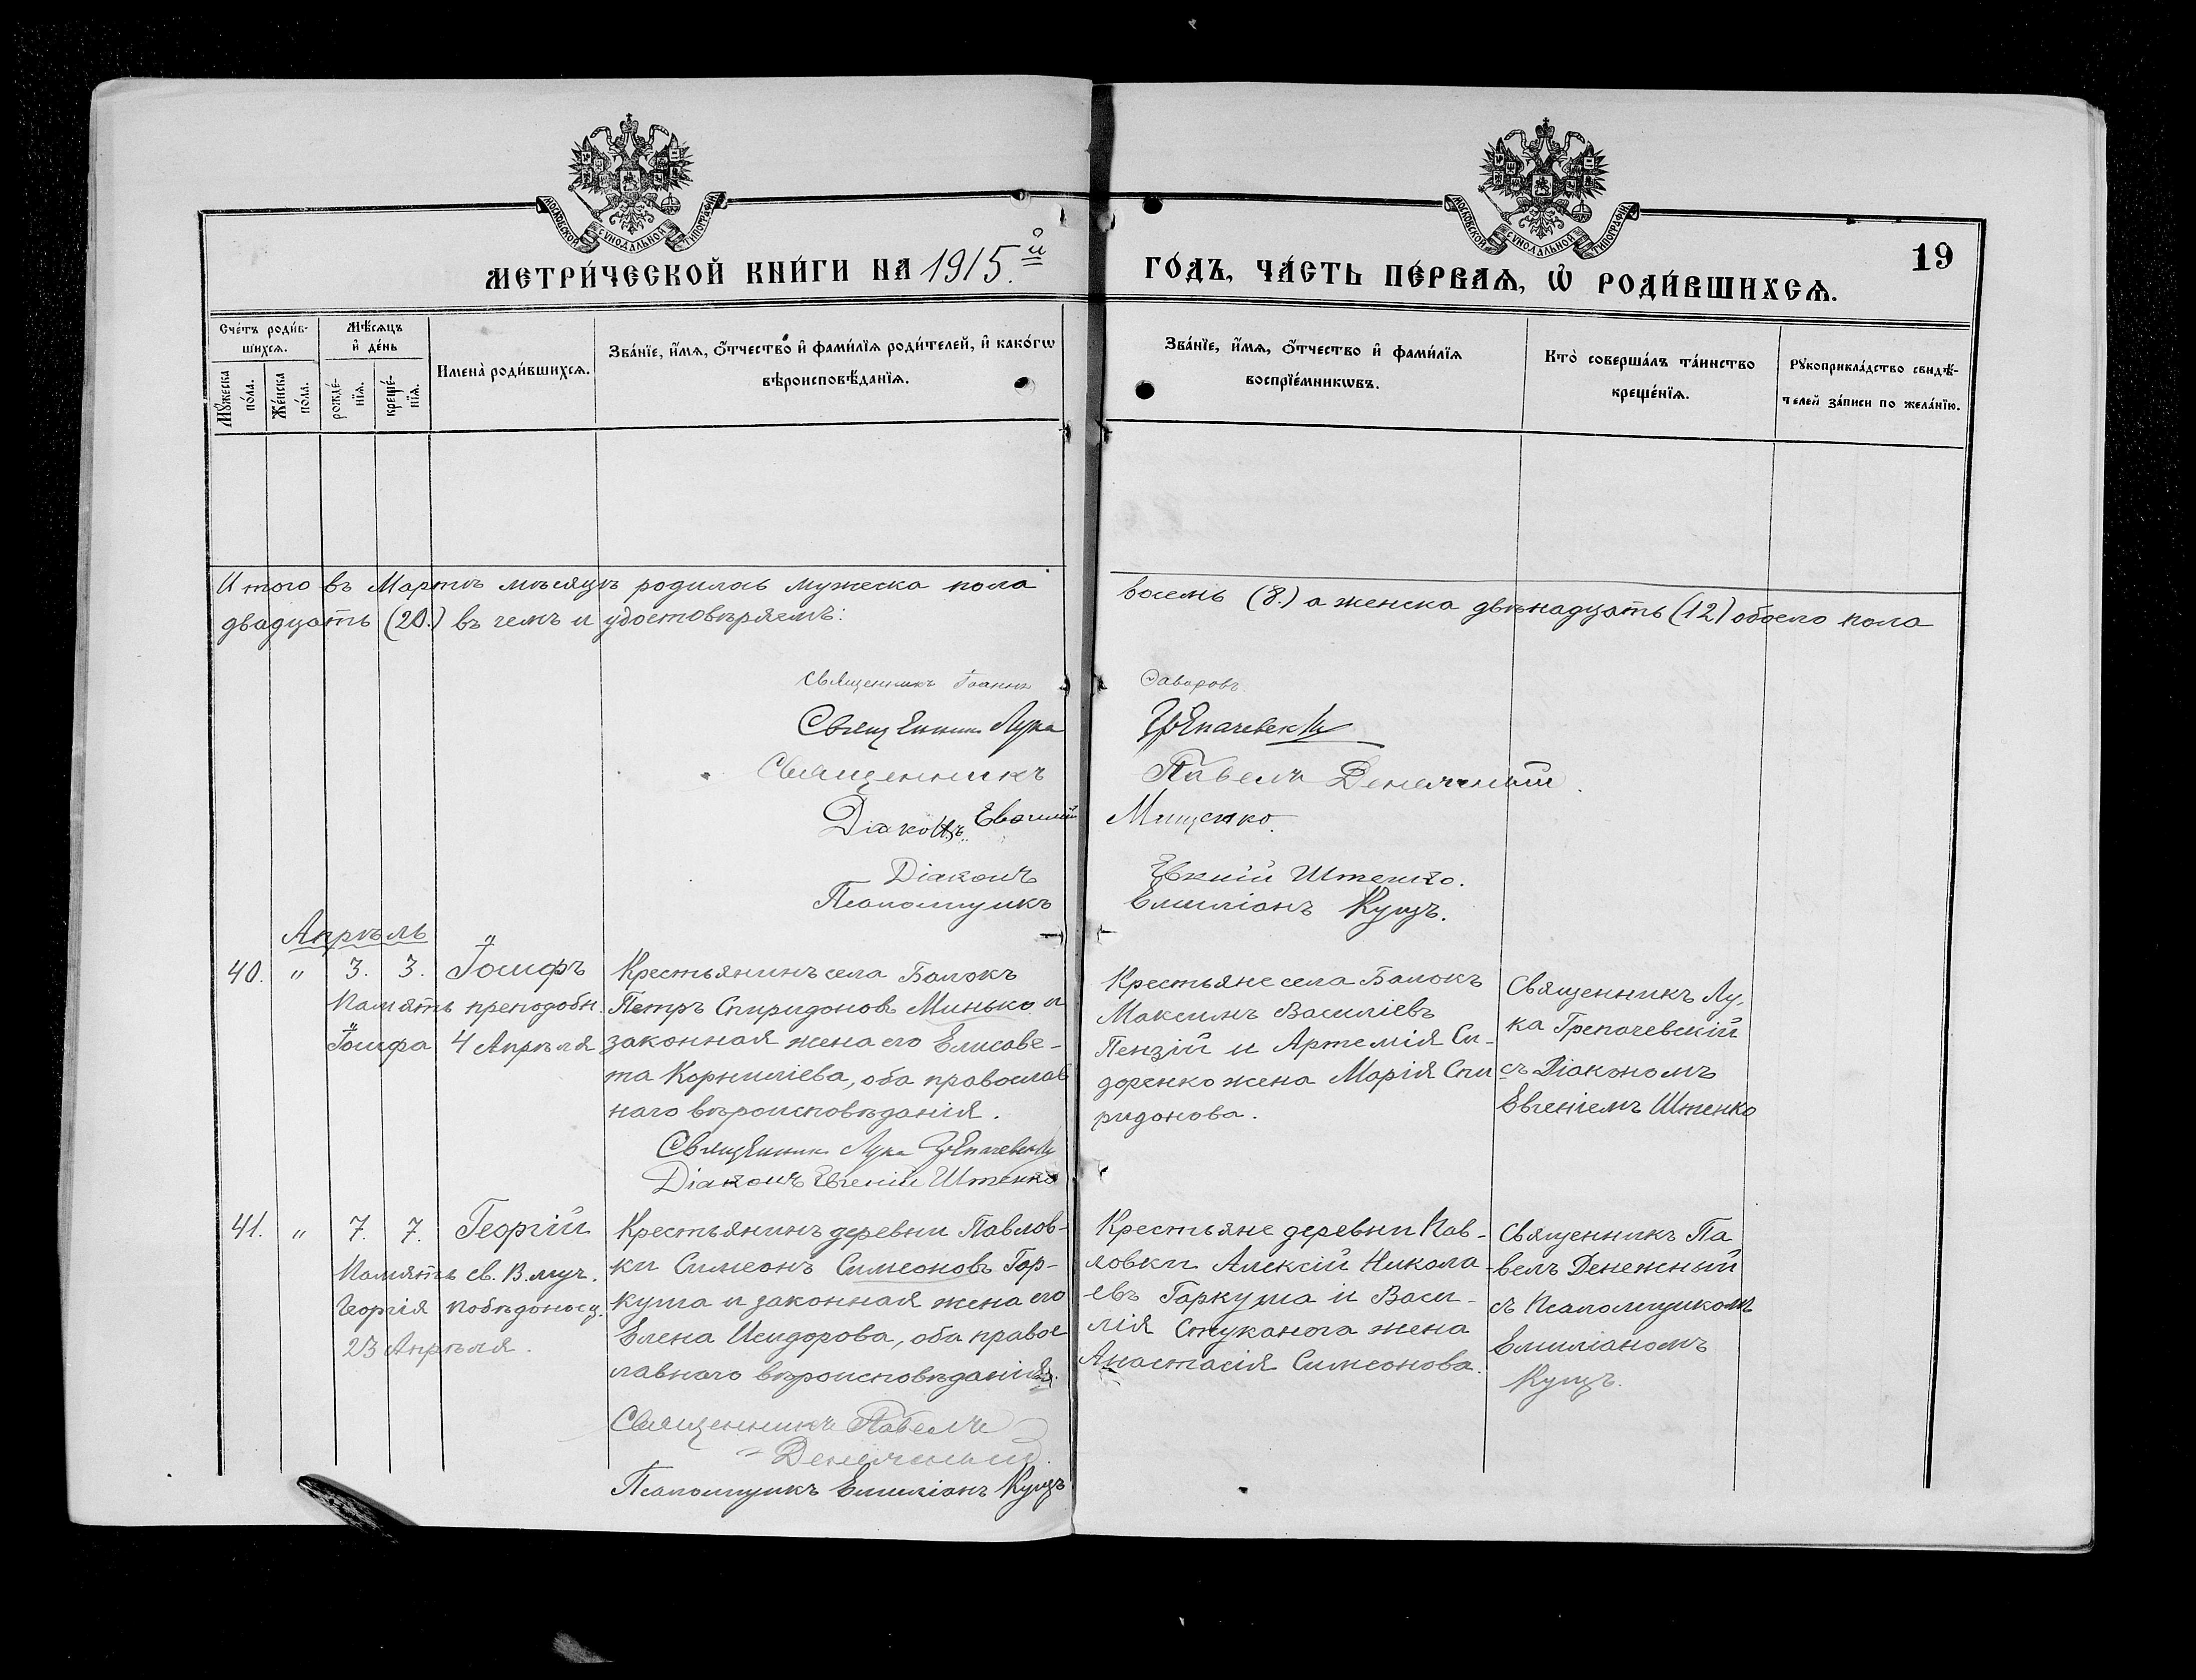 МОСКОВСКОЙ СѴНОДАЛЬНОЙ ТИПОГРАФІИ
МОСКОВСКОЙ СѴНОДАЛЬНОЙ ТИПОГРАФІИ
19
МЕТРИ́ЧЕСКОЙ КНИ́ГИ НА 1915.й ГО́ДЪ, ЧА́СТЬ ПЕ́РВАѦ, Ѡ҆ РОДИ́ВШИХСѦ.
Сче́тъ роди́в-
шихсѧ.
Мꙋ́жеска
по́ла.
Же́нска
по́ла.
Мѣ́сѧцъ
и҆ де́нь
рожде́-
нїѧ.
креще́-
нїѧ.
Имена̀ роди́вшихсѧ.
Зва́нїе, и҆́мѧ, ѻ҆́тчество и҆ фами́лїѧ роди́телей, и҆ како́гѡ
вѣроисповѣ́данїѧ.
Зва́нїе, и҆́мѧ, ѻ҆́тчество и҆ фами́лїѧ
воспрїе́мникѡвъ.
Кто̀ соверша́лъ та́инство
креще́нїѧ.
Рꙋкоприкла́дство свидѣ́-
телей за́писи по жела́нїю.
Итого въ Мартѣ мѣсяцѣ родилось мужеска пола восемь (8.) а женска двѣнадцать (12) обоего пола
двадцать (20.) въ чемъ и удостовѣряемъ:
Священникъ Іоаннъ
Священникъ Лука Грепачевскій
Священникъ Павелъ Денежный.
Діаконъ Мищенко.
Діаконъ Евгній Штенко.
Псаломщикъ Емиліанъ Кущъ.
Апрѣль
40. " 3. 3. Іосифъ
Память преподобн.
Іосифа 4 Апрѣля
Крестьянинъ села Балокъ
Петръ Спиридоновъ Минько и
законная жена его Елисаве-
та Корниліева, оба православ
наго вѣроисповѣданія.
Священникъ Лука Грепачевскій
Діаконъ Евгеній Штенко
Крестьяне села Балокъ
Максимъ Василіевъ
Пензій и Артемія Си-
доренко жена Марія Спи
ридонова.
Священникъ Лу-
ка Грепачевскій
съ Діакономъ
Евгеніемъ Штенко
41. " 7. 7. Георгій
Память св. В. муч.
Георгія Побѣдоносц.
23 Апрѣля.
Крестьянинъ деревни Павлов-
ки Симеонъ Симеоновъ Гар-
куша и законная жена его
Елена Исидорова, оба правос
лавнаго вѣроисповѣданія.
Священникъ Павелъ
Денежный.
Псаломщикъ Емиліанъ Кущъ
Крестьяне деревни Пав-
ловки Алексій Никола-
евъ Гаркуша и Васи-
лія Стуканога жена
Анастасія Симеонова.
Священникъ Па
велъ Денежный
съ Псаломщикомъ
Емиліаномъ
Кущъ.